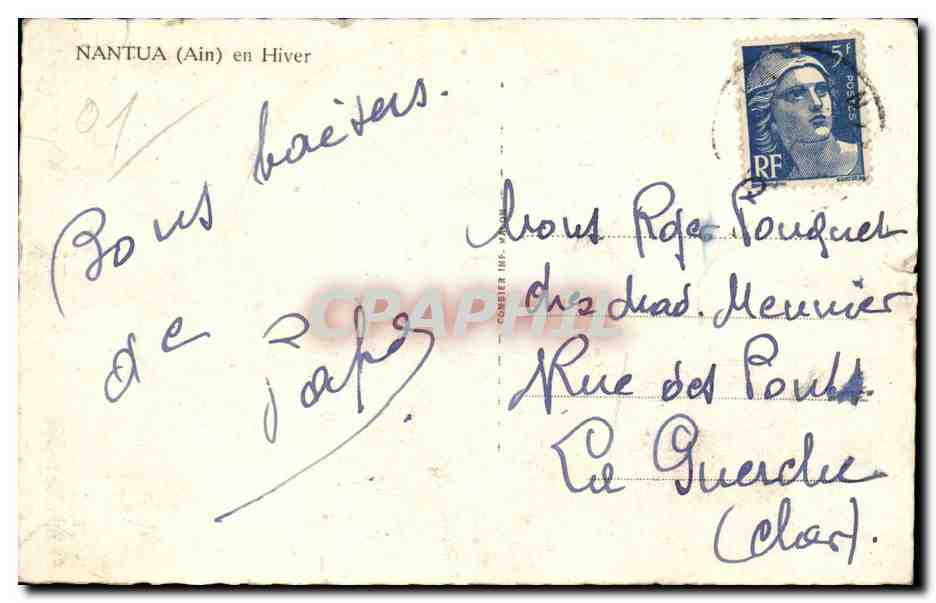 NANTUA (Ain) en Hiver
01
Bons baisers.
de
Papa
5F
POSTES
RF
COMBIER IMP. MACON
CPAPHIL
Mons Roger Pouquet
chez Mad. Meunier
Rue des Ponts.
La Guerche
(Cher).